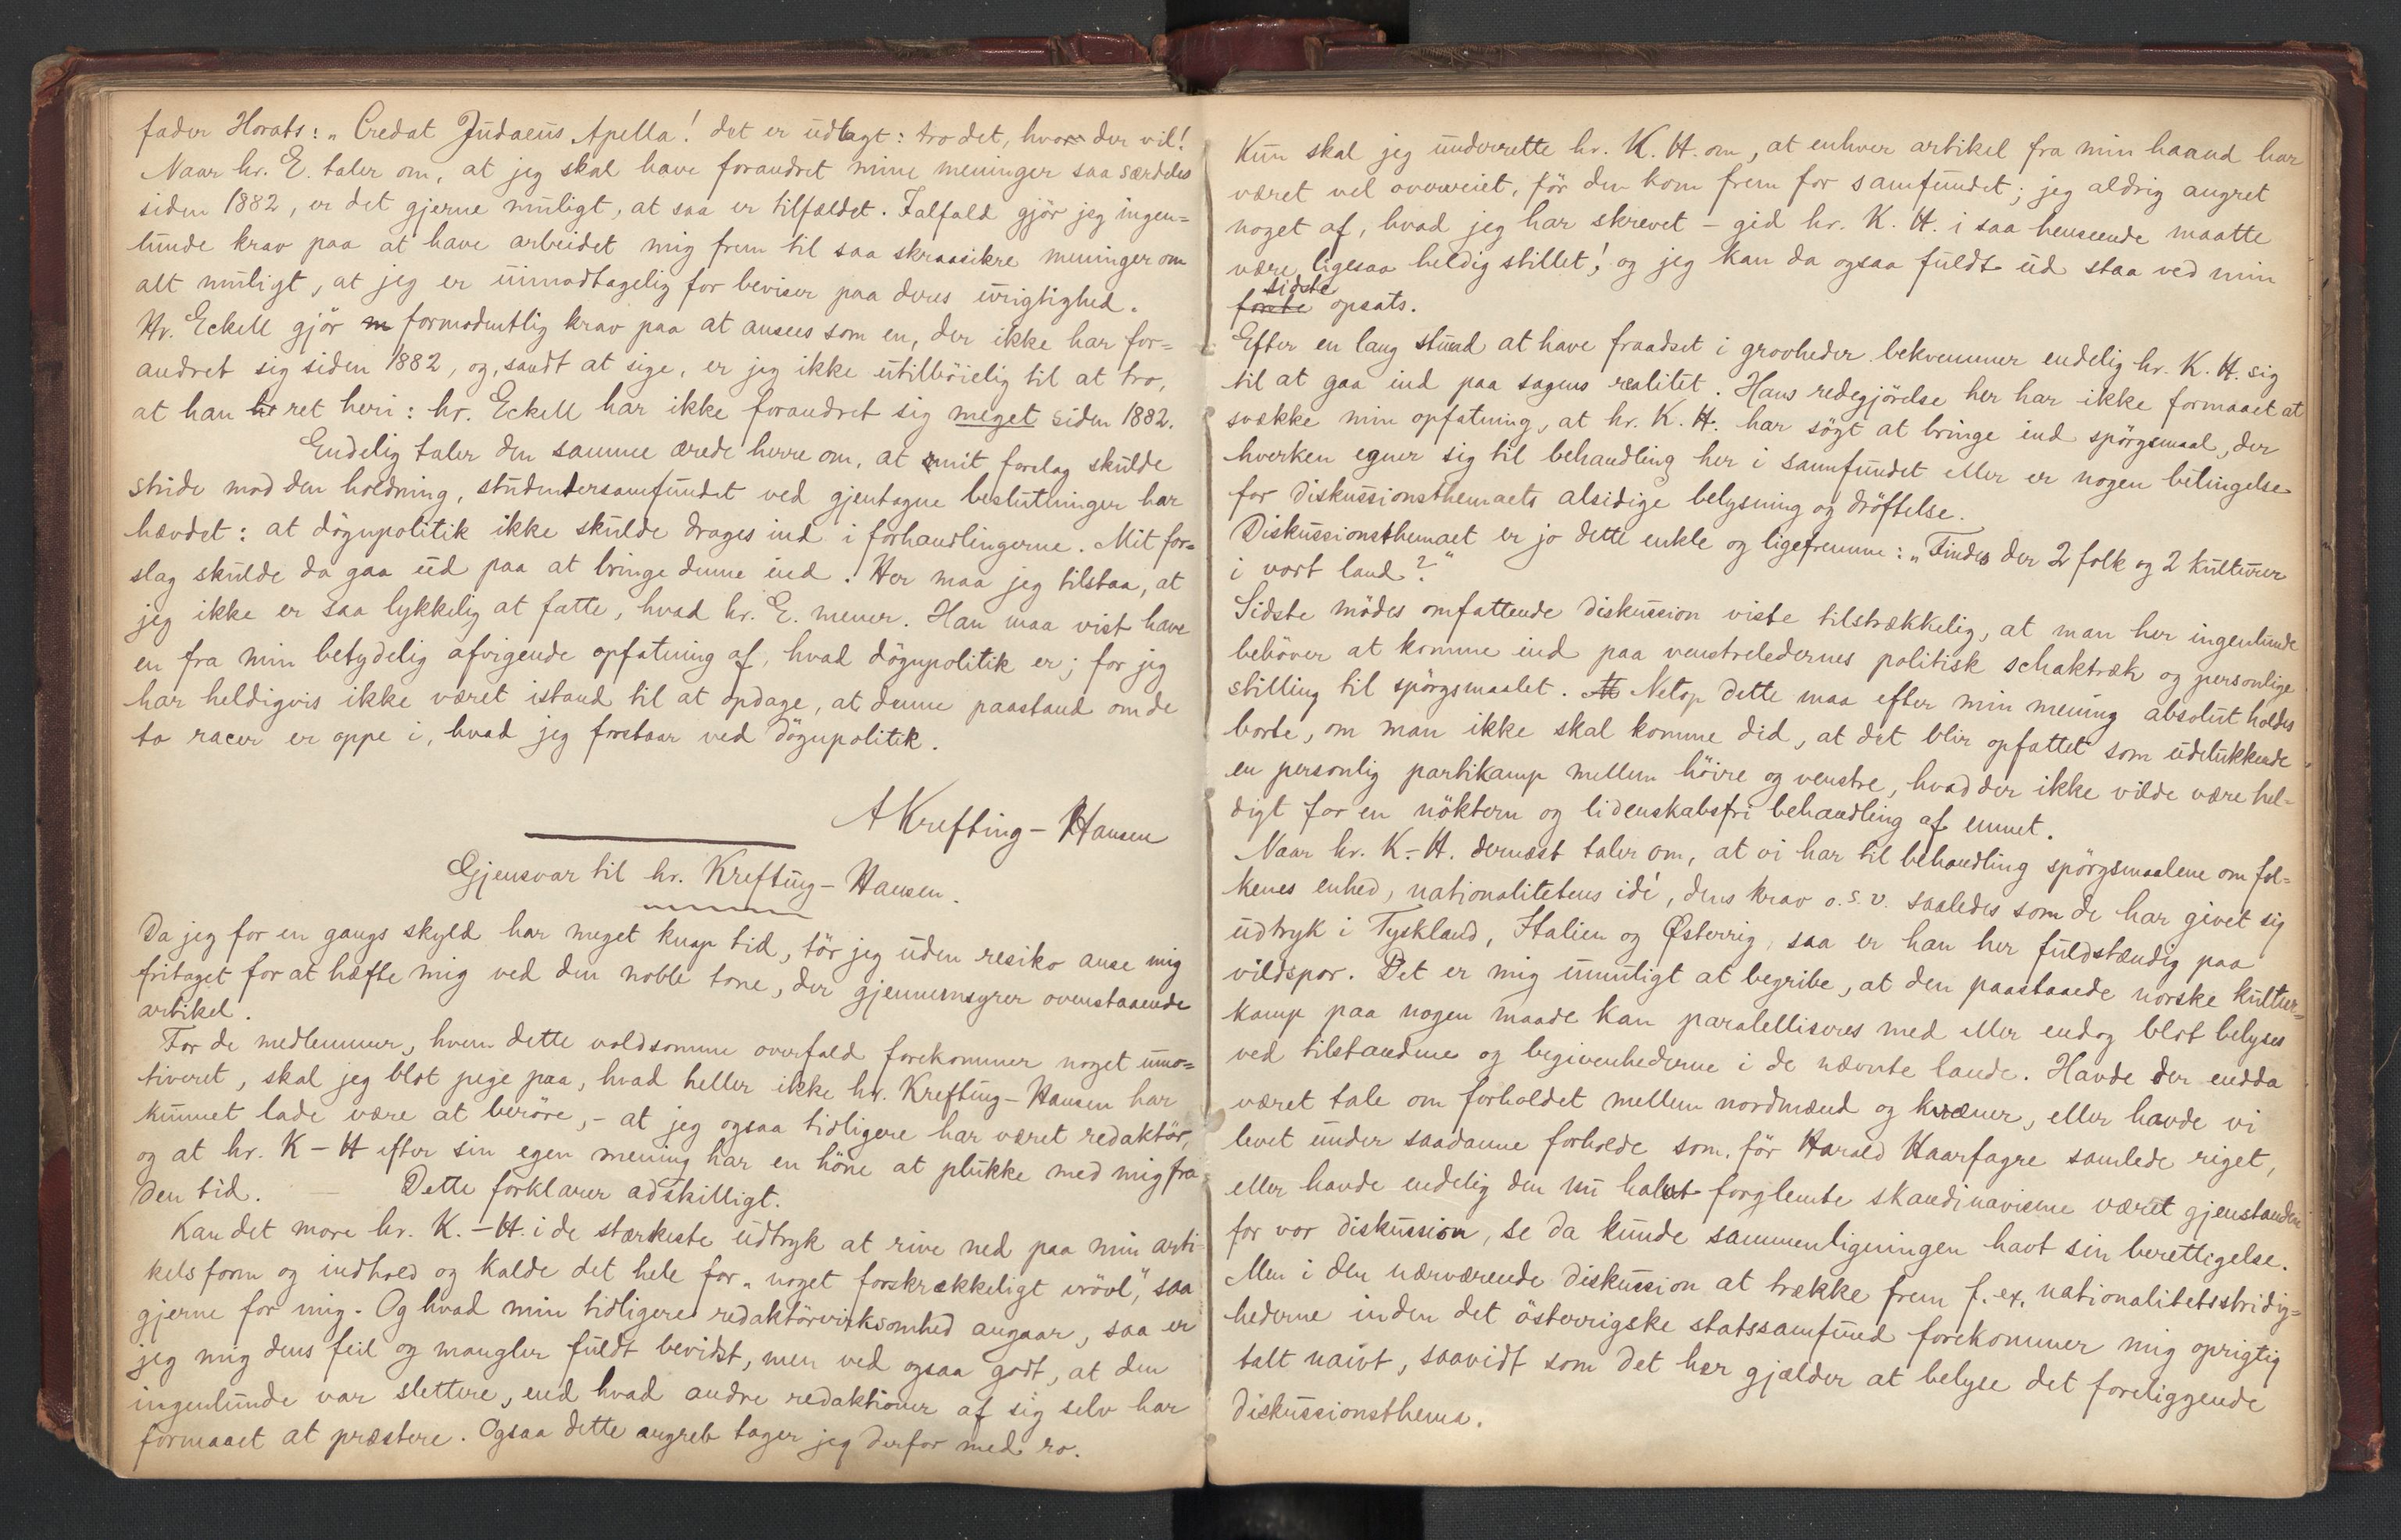 fader Horats: „Credat Judaeus Apella! det er udlagt: tro det, hvem der vil!
Naar hr. E. taler om, at jeg skal have forandret mine meninger saa særdeles
siden 1882, er det gjerne muligt, at saa er tilfældet. Ialfald gjör jeg ingen=
lunde krav paa at have arbeidet mig frem til saa skraasikre meninger om
alt muligt, at jeg er uimodtagelig for beviser paa deres urigtighed.
Hr. Eckell gjör formodentlig krav paa at ansees som en, der ikke har for=
andret sig siden 1882, og, sandt at sige, er jeg ikke utilböielig til at tro,
at han har ret heri: hr. Eckell har ikke forandret sig meget siden 1882.
Endelig taler den samme ærede herre om, at mit forslag skulde
stride mod den holdning, studentersamfundet ved gjentagne beslutninger har
hævdet: at dögnpolitik ikke skulde drages ind i forhandlingerne. Mit for=
slag skulde da gaa ud paa at bringe denne ind. Her maa jeg tilstaa, at
jeg ikke er saa lykkelig at fatte, hvad hr. E. mener. Han maa vist have
en fra min betydelig afvigende opfatning af, hvad dögnpolitik er; for jeg
har heldigvis ikke været istand til at opdage, at denne paastand om de
to racer er oppe i, hvad jeg forstaar ved dögnpolitik.
A Krefting-Hansen
Gjensvar til hr. Krefting-Hansen.
Da jeg for en gangs skyld har meget knap tid, tör jeg uden resiko anse mig
fritaget for at hæfte mig ved den noble tone, der gjennemsyrer ovenstaaende
artikel.
For de medlemmer, hvem dette voldsomme overfald forekommer noget umo=
tiveret, skal jeg blot pege paa, hvad heller ikke hr. Krefting-Hansen har
kunnet lade være at beröre, - at jeg ogsaa tidligere har været redaktör,
og at hr. K-H efter sin egen mening har en höne at plukke med mig fra
den tid. — Dette forklarer adskilligt.
Kan det more hr. K.-H. i de stærkeste udtryk at rive ned paa min arti-
kels form og indhold og kalde det hele for „noget forskrækkeligt vrövl", saa
gjerne for mig. Og hvad min tidligere redaktörvirksomhed angaar, saa er
jeg mig dens feil og mangler fuldt bevidst, men ved ogsaa godt, at den
ingenlunde var slettere, end hvad andre redaktioner af sig selv har
formaaet at præstere. Ogsaa dette angreb tager jeg derfor med ro.
Kun skal jeg underrette hr. K. H. om, at enhver artikel fra min haand har
været vel overveiet, för den kom frem for samfundet; jeg aldrig angret
noget af, hvad jeg har skrevet - gid hr. K. H. i saa henseende maatte
være ligesaa heldig stillet! og jeg kan da ogsaa fuldt ud staa ved min
sidste
første opsats.
Efter en lang stund at have fraadset i grovheder bekvemmer endelig hr. K. H. sig
til at gaa ind paa sagens realitet. Hans redegjörelse her har ikke formaaet at
svække min opfatning, at hr. K. H. har sögt at bringe ind spörgsmaal, der
hverken egner sig til behandling her i samfundet eller er nogen betingelse
for diskussionsthemaets alsidige belysning og dröftelse.
Diskussionsthemaet er jo dette enkle og ligefremme: „Findes der 2 folk og 2 kulturer
i vort land?"
Sidste mödes omfattende diskussion viste tilstrækkelig, at man her ingenlunde
behöver at komme ind paa venstreledernes politisk schaktræk og personlige
stilling til spörgsmaalet. At Netop dette maa efter min mening absolut holdes
borte, om man ikke skal komme did, at det blir opfattet som udelukkende
en personlig partikamp mellem höire og venstre, hvad der ikke vilde være hel=
digt for en nöktern og lidenskabsfri behandling af emnet.
Naar hr. K.-H. dernæst taler om, at vi har til behandling spörgsmaalene om fol=
kenes enhed, nationalitetens idé, dens krav o. s. v. saaledes som de har givet sig
udtryk i Tyskland, Italien og Østerrig, saa er han her fuldstændig paa
vildspor. Det er mig umuligt at begribe, at den paastaaede norske kultur=
kamp paa nogen maade kan paralelliseres med eller endog blot belyses
ved tilstandene og begivenhederne i de nævnte lande. Havde der endda
været tale om forholdet mellem nordmænd og kvæner, eller havde vi
levet under saadanne forholde som för Harald Haarfagre samlede riget,
eller havde endelig den nu halvt forglemte skandinavisme været gjenstanden
for vor diskussion, se da kunde sammenligningen havt sin berettigelse.
Men i den nærværende diskussion at trække frem f. ex. nationalitetsstridig=
hederne inden det österrigske statssamfund forekommer mig oprigtig
talt naivt, saavidt som det her gjælder at belyse det foreliggende
diskussionsthema.